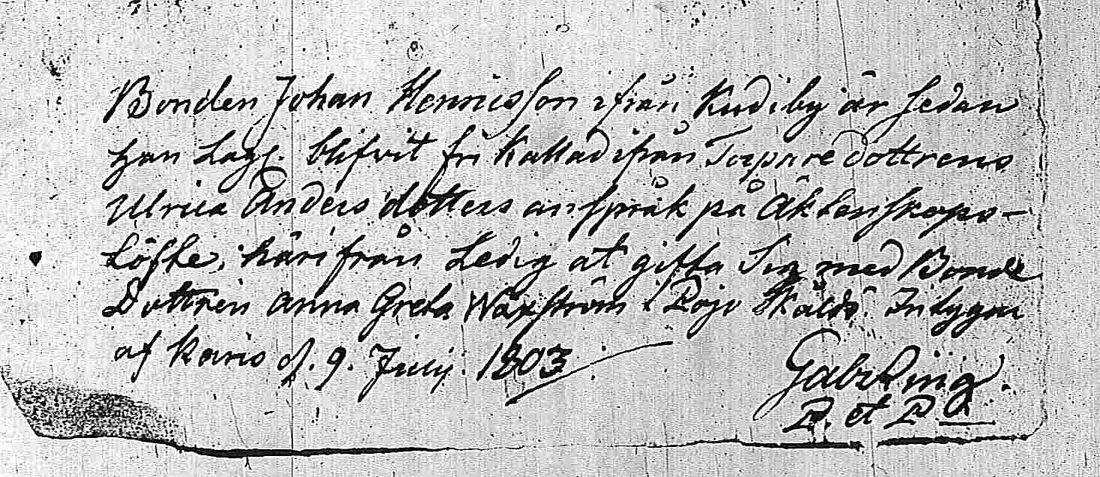 Bonden Johan Hennisson ifrån Kudiby är sedan
han Lagl. blifvit fri kallad ifrån Torpare dottrens
Ulrica Anders dotters anspråk på Äktenskaps-
Löfte, härifrån Ledig at gifta Sig med Bonde
Dottren Anna Greta Waxström i Pojo Skåldö. Intygar
af Karis d. 9. Julij. 1803
Gabr Ring.
P. et P.